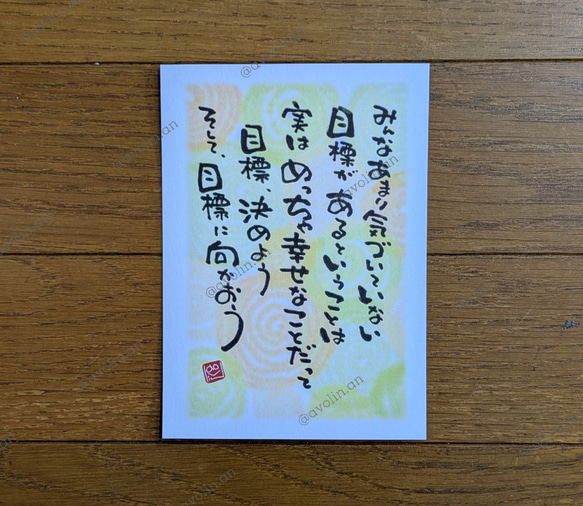 みんなあまり気づいていない
目標が あるということは
実は めっちゃ幸せなことだって
目標、決めよう
そして、目標に向かおう
@avolin.an
@avolin.an
@avolin.an